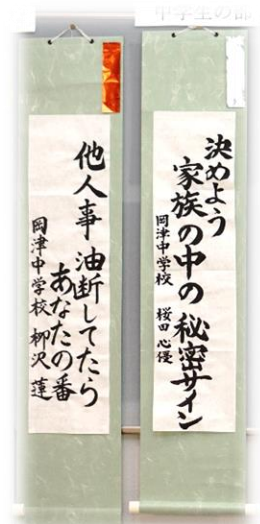 中学生の部
決めよう
家族の中の
秘密サイン
岡津中学校 桜田 心優
他人事
油断してたら
あなたの番
岡津中学校 柳沢 蓮